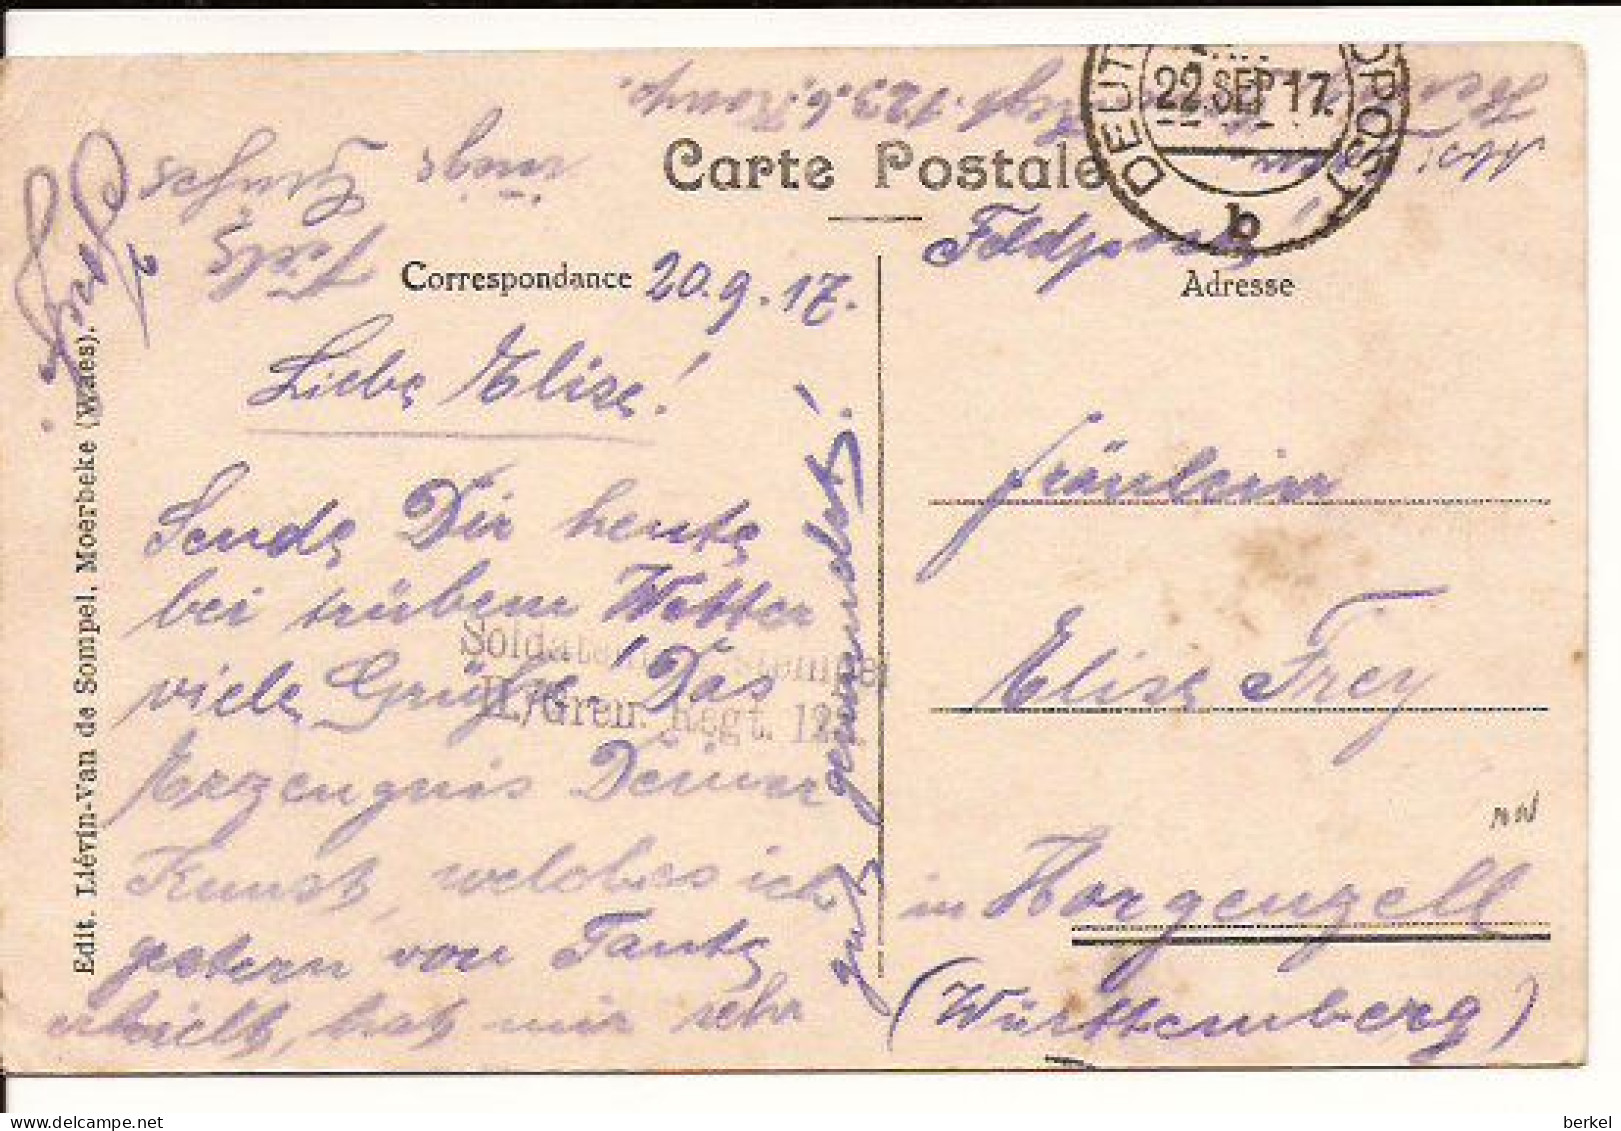 Carte Postale
DEUT
22 SEP 17.
b
Feldpost!
Correspondance
20.9.17.
Adresse
Liebe Elise!
Sende Dir heute
bei trübem Wetter
viele Grüße! Das
Erzeugnis Deiner
Kunst, welches ich
gestern von Tante
erhielt, hat mir sehr
gut gemundet!
Viele
Grüße
Regt. 123. 6. Komp.
Soldatenbrief Stempel
II./Gren. Regt. 123.
Fräulein
Elise Frey
in Horgenzell
(Württemberg)
Edit. Liévin-Van de Sompel, Moerbeke (Waes).
berkel